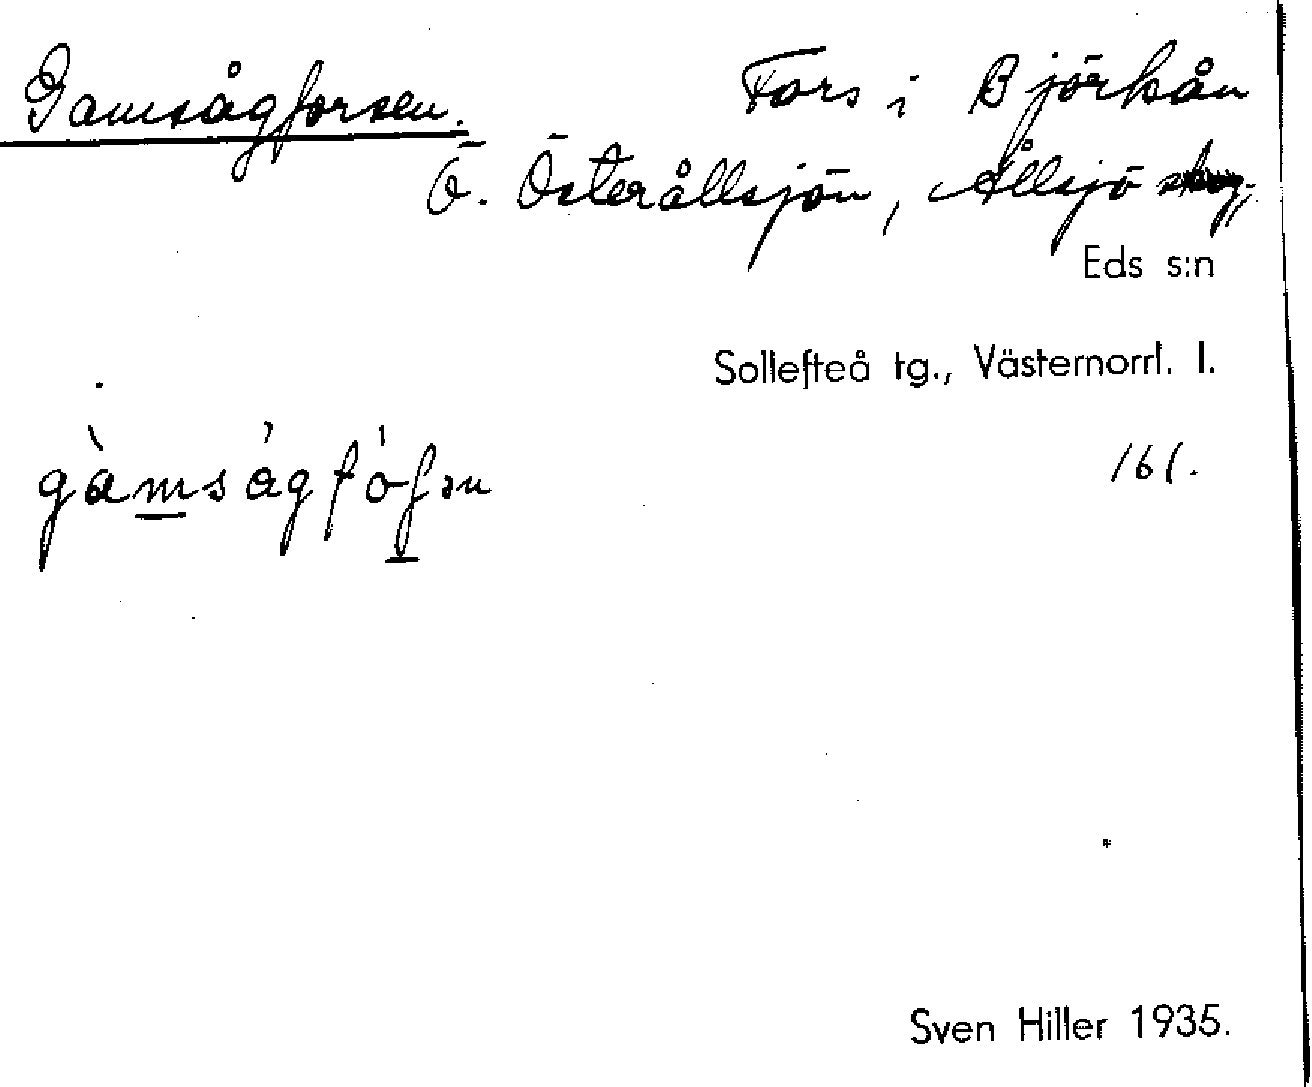 Gamsågforsen. Fors i Björkån
Ö. Österållsjön, Ållsjö skog,
Eds s:n
Sollefteå tg., Västernorrl. l.
gàmságfóʃən
161.
Sven Hiller 1935.